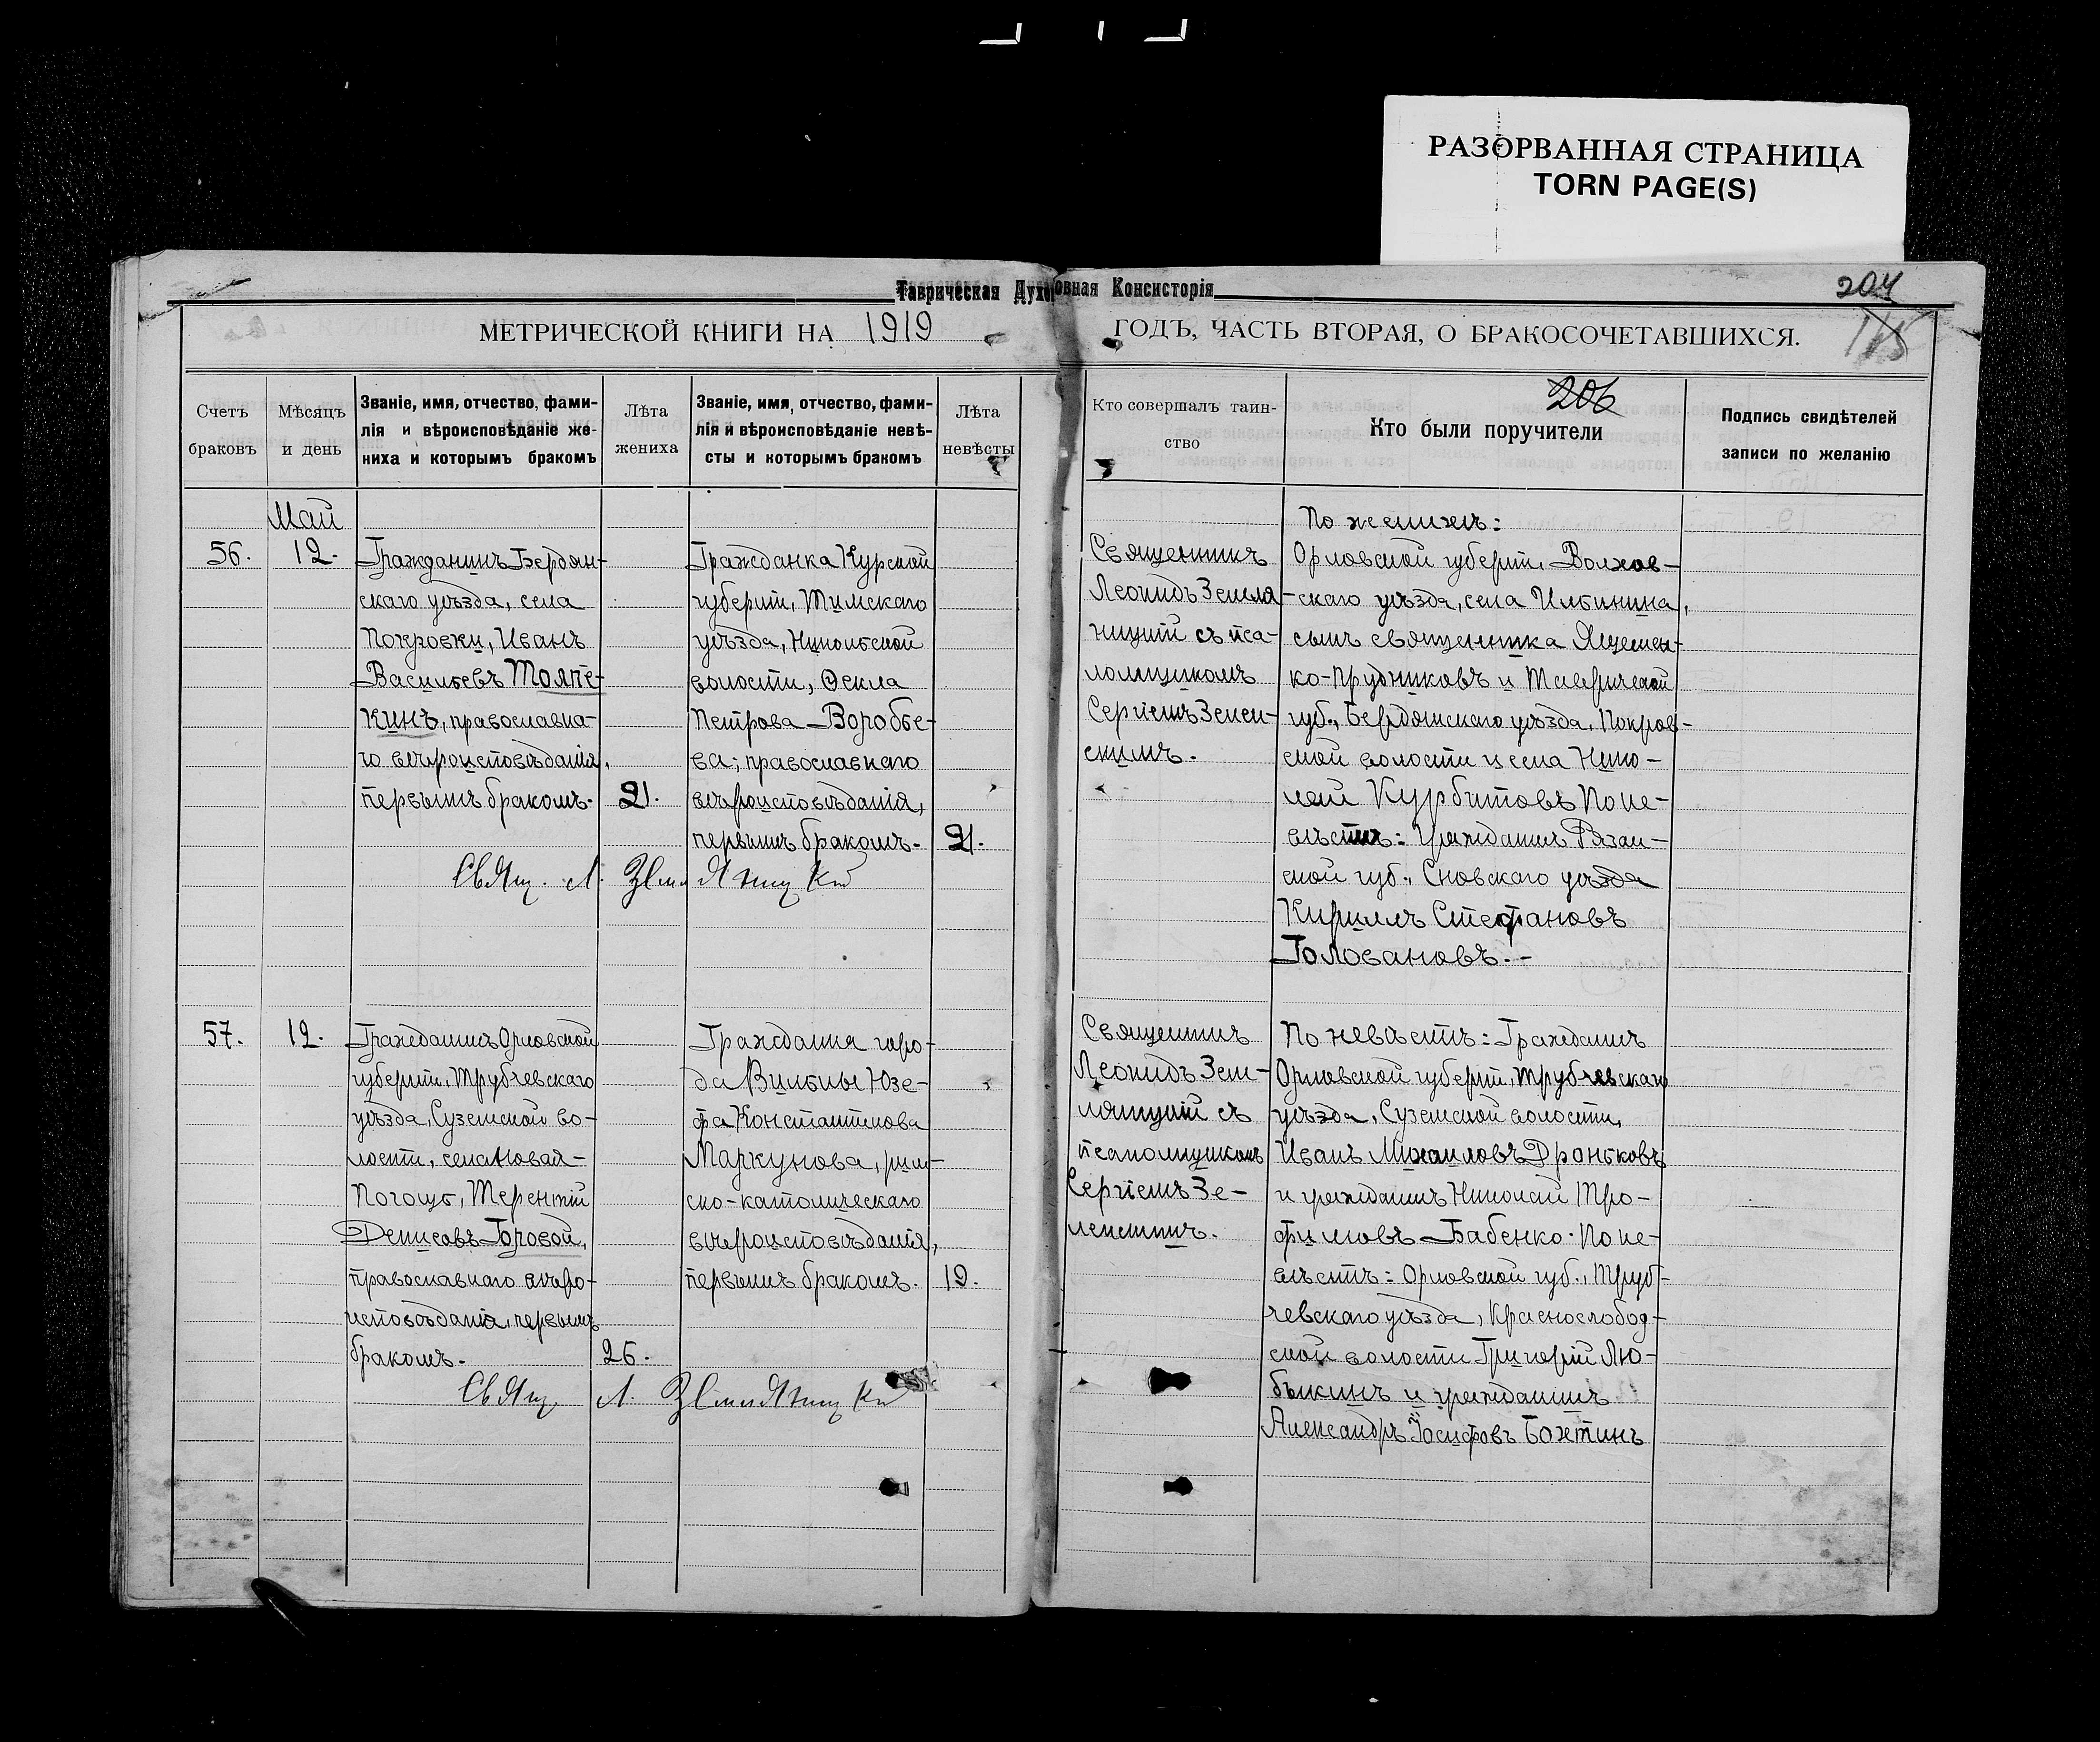 РАЗОРВАННАЯ СТРАНИЦА
TORN PAGE(S)
Таврическая Духовная Консисторія
204
МЕТРИЧЕСКОЙ КНИГИ НА 1919 ГОДЪ, ЧАСТЬ ВТОРАЯ, О БРАКОСОЧЕТАВШИХСЯ.
115
Счетъ
браковъ
Мѣсяцъ
и день
Званіе, имя, отчество, фами-
лія и вѣроисповѣданіе же-
ниха и которымъ бракомъ
Лѣта
жениха
Званіе, имя, отчество, фами-
лія и вѣроисповѣданіе невѣ-
сты и которымъ бракомъ
Лѣта
невѣсты
Кто совершалъ таин-
ство
206
Кто были поручители
Подпись свидѣтелей
записи по желанію
Май
56.
12.
Гражданинъ Бердян-
скаго уѣзда, села
Покровки, Иванъ
Васильевъ Толпе-
кинъ, православна-
го вѣроисповѣданія,
первымъ бракомъ.
21.
Гражданка Курской
губерніи, Тимскаго
уѣзда, Никольской
волости, Ѳекла
Петрова Воробье-
ва; православнаго
вѣроисповѣданія,
первымъ бракомъ.
21.
Священникъ
Леонидъ Земля-
ницкій съ пса-
ломщикомъ
Сергіемъ Зелен-
скимъ.
По женихѣ:
Орловской губерніи, Волхов-
скаго уѣзда, села Ильинина,
сынъ священника Ященен-
ко-Прудниковъ и Таврической
губ., Бердянскаго уѣзда, Покров-
ской волости и села Нико-
лай Курбатовъ По не-
вѣстѣ: гражданинъ Рязан-
ской губ., Сновскаго уѣзда
Кириллъ Стефановъ
Головановъ.-
Свящ. Л. Земляницкій
57.
12.
Гражданинъ Орловской
губерніи, Трубчевскаго
уѣзда, Суземской во-
лости, села Новая-
Погощь, Терентій
Денисовъ Боровой,
православнаго вѣро-
исповѣданія, первымъ
бракомъ.
26.
Гражданка горо-
да Вильны Юзе-
фа Константинова
Маркунова, рим-
ско-католическаго
вѣроисповѣданія,
первымъ бракомъ.
19.
Священникъ
Леонидъ Зем-
ляницкій съ
псаломщикомъ
Сергіемъ Зе-
ленскимъ.
По невѣстѣ: Гражданинъ
Орловской губерніи, Трубчевскаго
уѣзда, Суземской волости,
Иванъ Михаиловъ Дроньковъ
и гражданинъ Николай Тро-
фимовъ Бабенко. По не-
вѣстѣ: Орловской губ., Труб-
чевскаго уѣзда, Краснослобод-
ской волости Григорій Лю-
быкинъ и гражданинъ
Александръ Іосифовъ Бахтинъ
Свящ. Л. Земляницкій